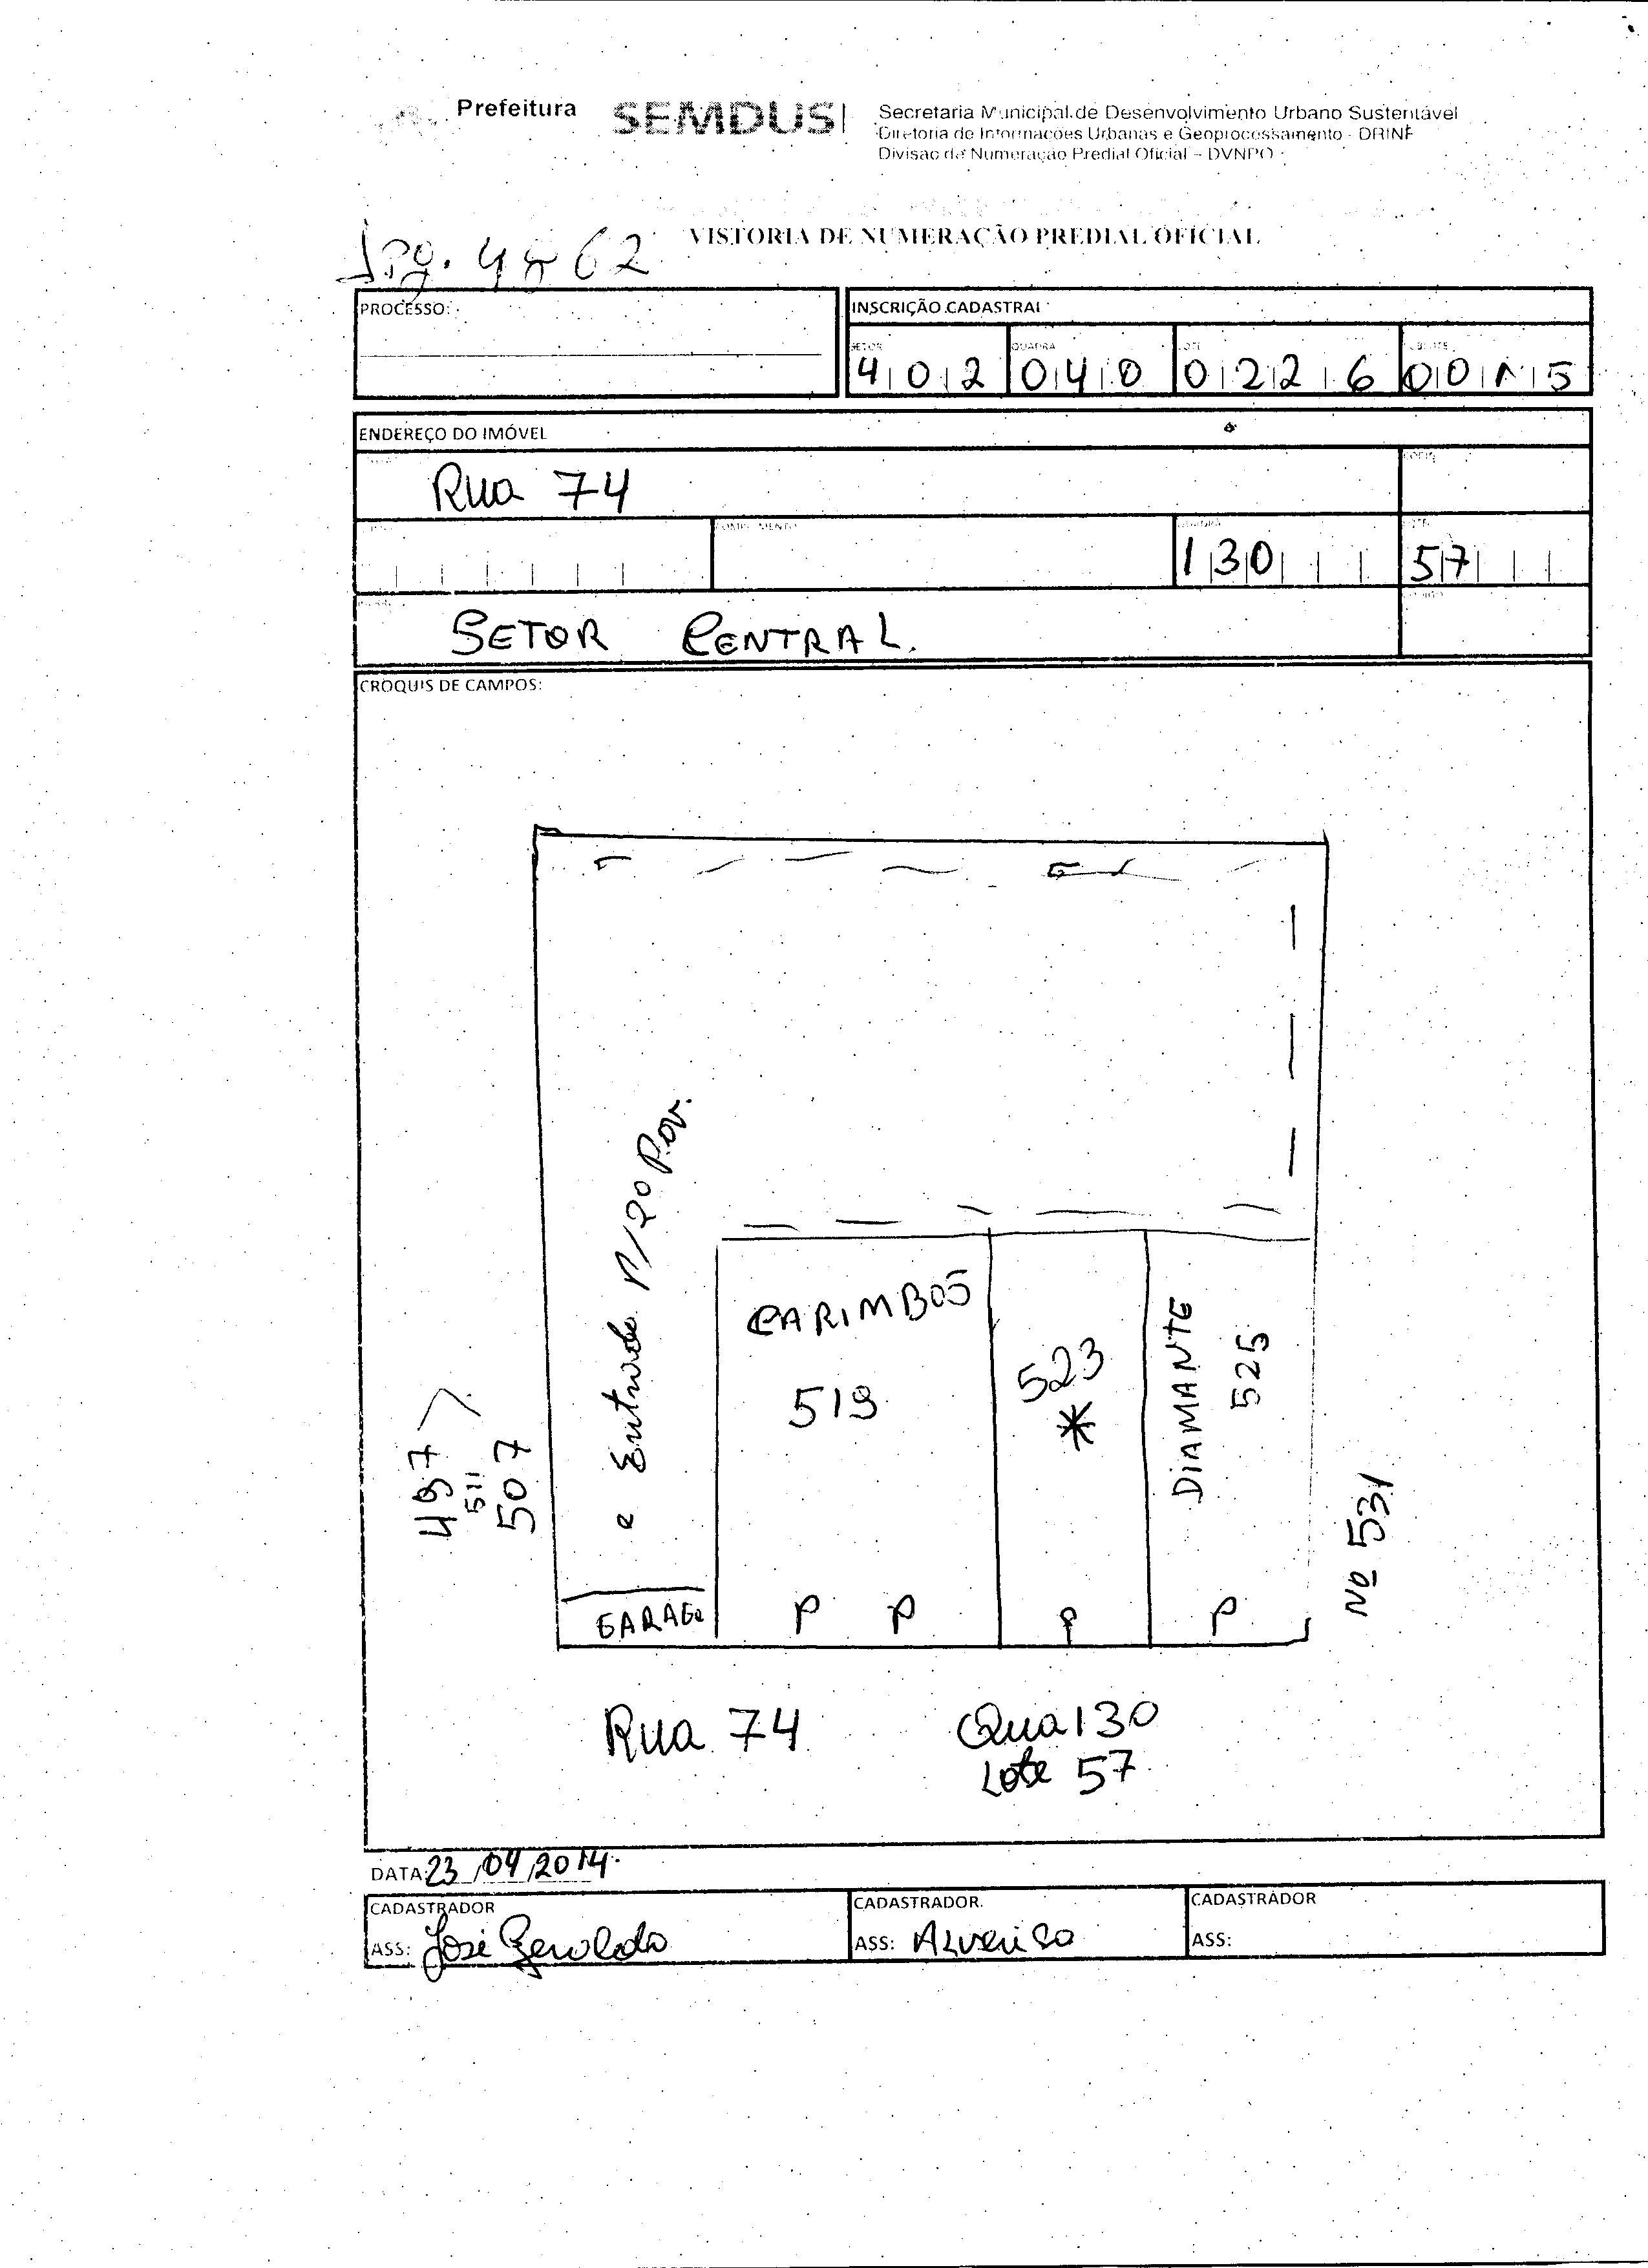 Prefeitura SEMDUS
Secretaria Municipal de Desenvolvimento Urbano Sustentável
Diretoria de Informações Urbanas e Geoprocessamento - DRINF
Divisão de Numeração Predial Oficial – DVNPO
VISTORIA DE NUMERAÇÃO PREDIAL OFICIAL
PROCESSO:
INSCRIÇÃO CADASTRAL
SETOR QUADRA LOTE
402 040 0226 0015
ENDEREÇO DO IMÓVEL
Rua 74
COMPLEMENTO QUADRA LOTE
130 57
SETOR CENTRAL.
CROQUIS DE CAMPOS:
Entrada P/2º Pav.
CARIMBOS
519
523
*
DIAMANTE
525
497
511
507
Nº 531
GARAGE
P P P P
Rua 74 Qua 130
Lote 57
DATA: 23/04/2014
CADASTRADOR CADASTRADOR. CADASTRADOR
ASS: José Geraldo ASS: ASS: